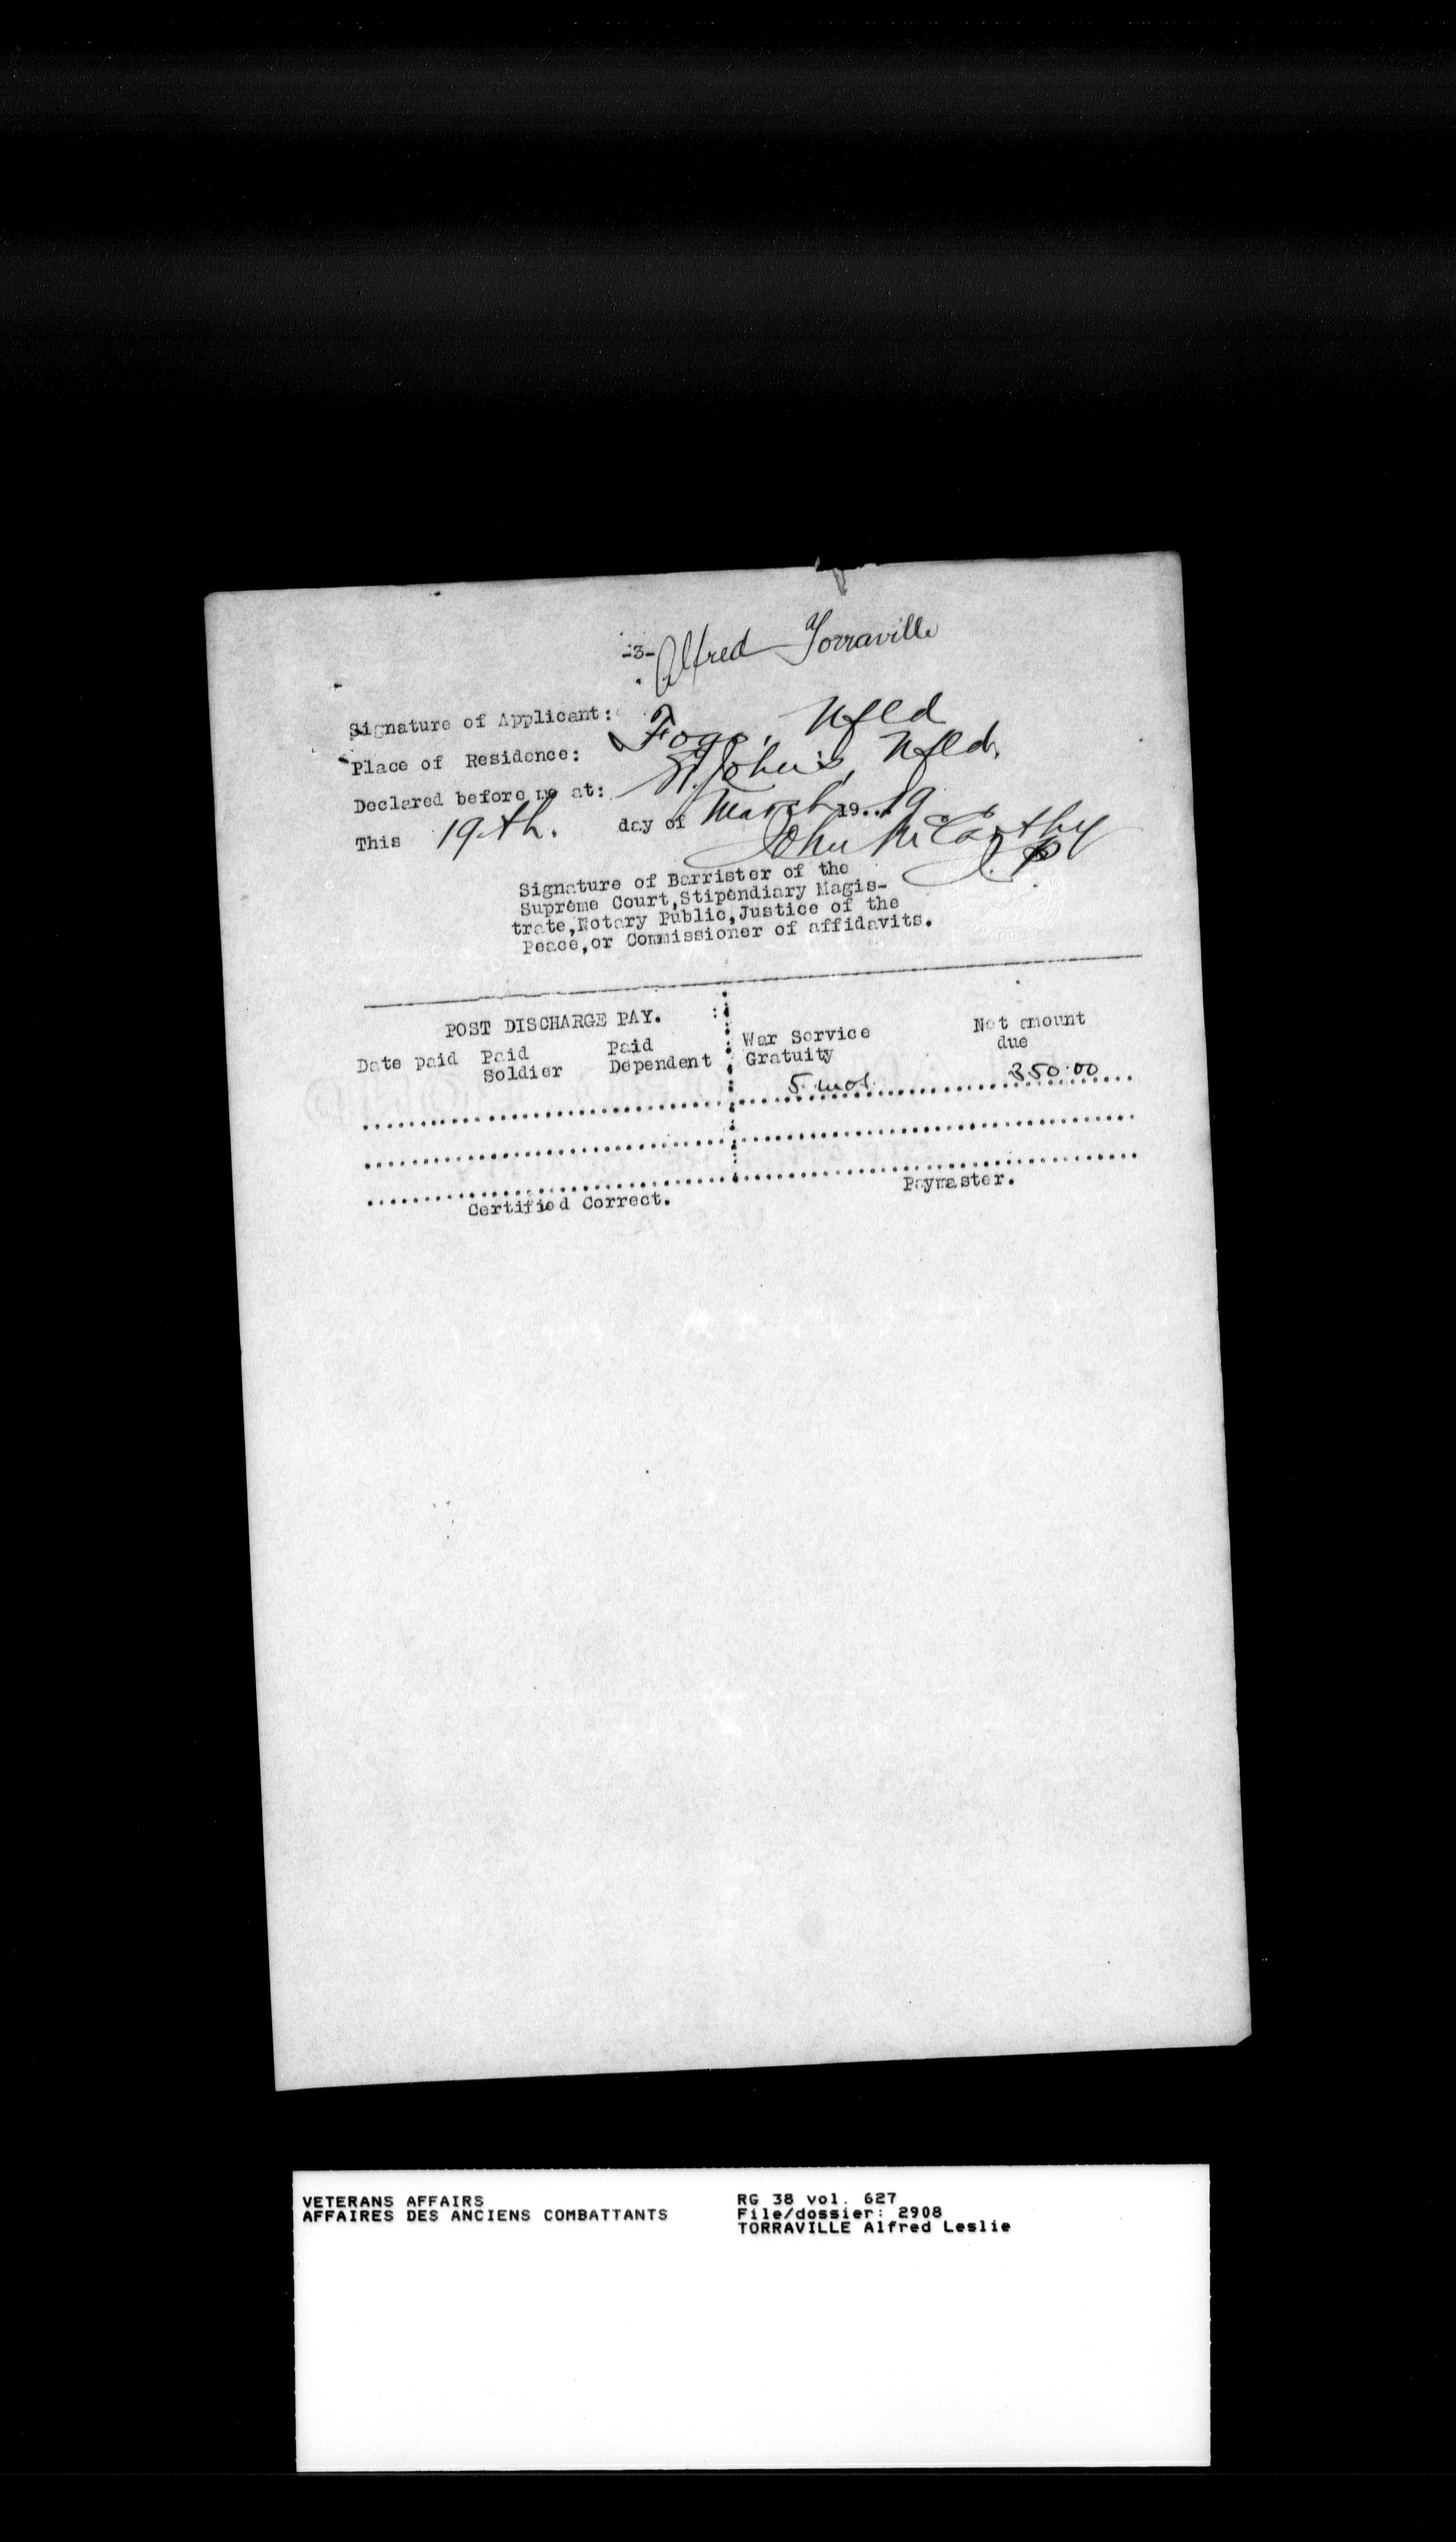 -3- Alfred Torraville
Signature of Applicant:
Place of Residence: Fogo, Nfld
Declared before me at: St. John's, Nfld.
This 19th. day of March 19... 19
John McCarthy
J.P.
Signature of Barrister of the
Supreme Court,Stipendiary Magis-
trate,Notary Public,Justice of the
Peace,or Commissioner of affidavits.
POST DISCHARGE PAY.
Date paid Paid Soldier Paid Dependent War Service Gratuity Net amount due
5 mos. 350.00
Certified Correct. Paymaster.
VETERANS AFFAIRS
AFFAIRES DES ANCIENS COMBATTANTS
RG 38 vol. 627
File/dossier: 2908
TORRAVILLE Alfred Leslie